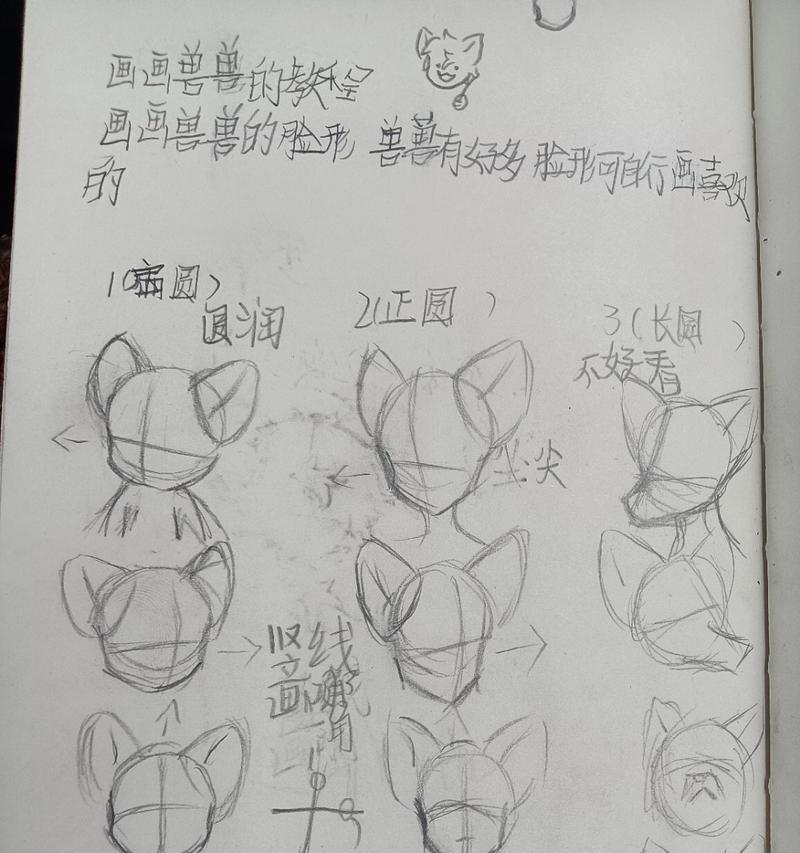 画画兽兽的教程
画画兽兽的脸形 兽兽有好多脸形可自行画喜欢
的
1(扁圆)
圆润
2(正圆)
3(长圆)
不好看
尖
竖线
画嘴
角